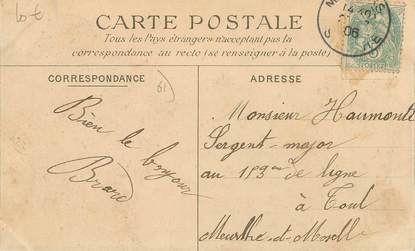 10 €
CARTE POSTALE
Tous les Pays étrangers n'acceptant pas la
correspondance au recto (se renseigner à la poste)
CORRESPONDANCE
ADRESSE
Bien le bonjour
Monsieur Haumonté
Sergent-major
au 153ème de ligne
à Toul
Meurthe-et-Moselle